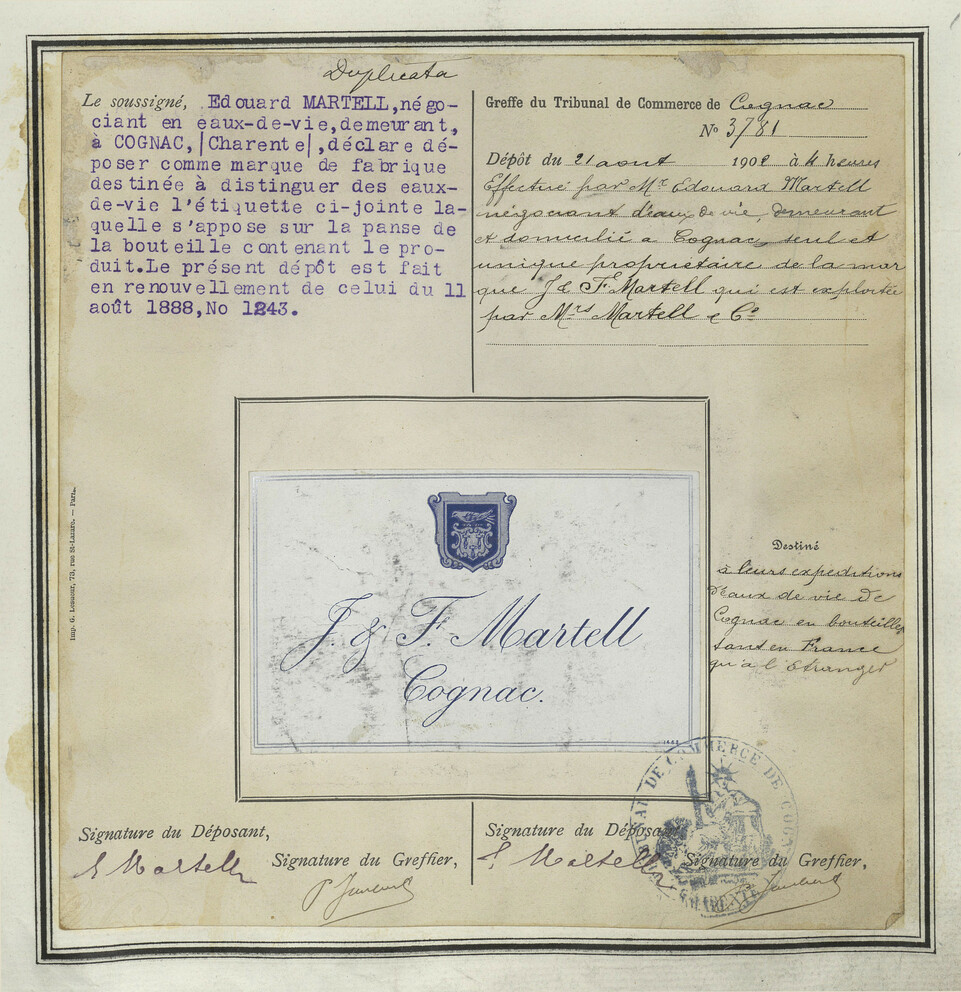 Duplicata
Le soussigné, Edouard MARTELL, négo-
ciant en eaux-de-vie, demeurant,
à COGNAC, |Charente|, déclare dé-
poser comme marque de fabrique
destinée à distinguer des eaux-
de-vie l'étiquette ci-jointe la-
quelle s'appose sur la panse de
la bouteille contenant le pro-
duit. Le présent dépôt est fait
en renouvellement de celui du 11
août 1888, No 1243.
Greffe du Tribunal de Commerce de Cognac
No 3781
Dépôt du 21 aout 1902 à 4 heures
Effectué par Mr Edouard Martell
négociant d'eaux de vie, demeurant
et domicilié a Cognac, seul et
unique propriétaire de la mar
que J & F Martell qui est exploitée
par Mrs Martell & Co
Imp. G. Lesueur, 73, rue St-Lazare. — Paris.
J. & F. Martell
Cognac.
Destiné
à leurs expeditions
d'eaux de vie de
Cognac en bouteilles
tant en France
qu'a l'Etranger
TRIBUNAL DE COMMERCE DE COGNAC
CHARENTE
Signature du Déposant,
E Martell
Signature du Greffier,
Signature du Déposant,
E Martell
Signature du Greffier,